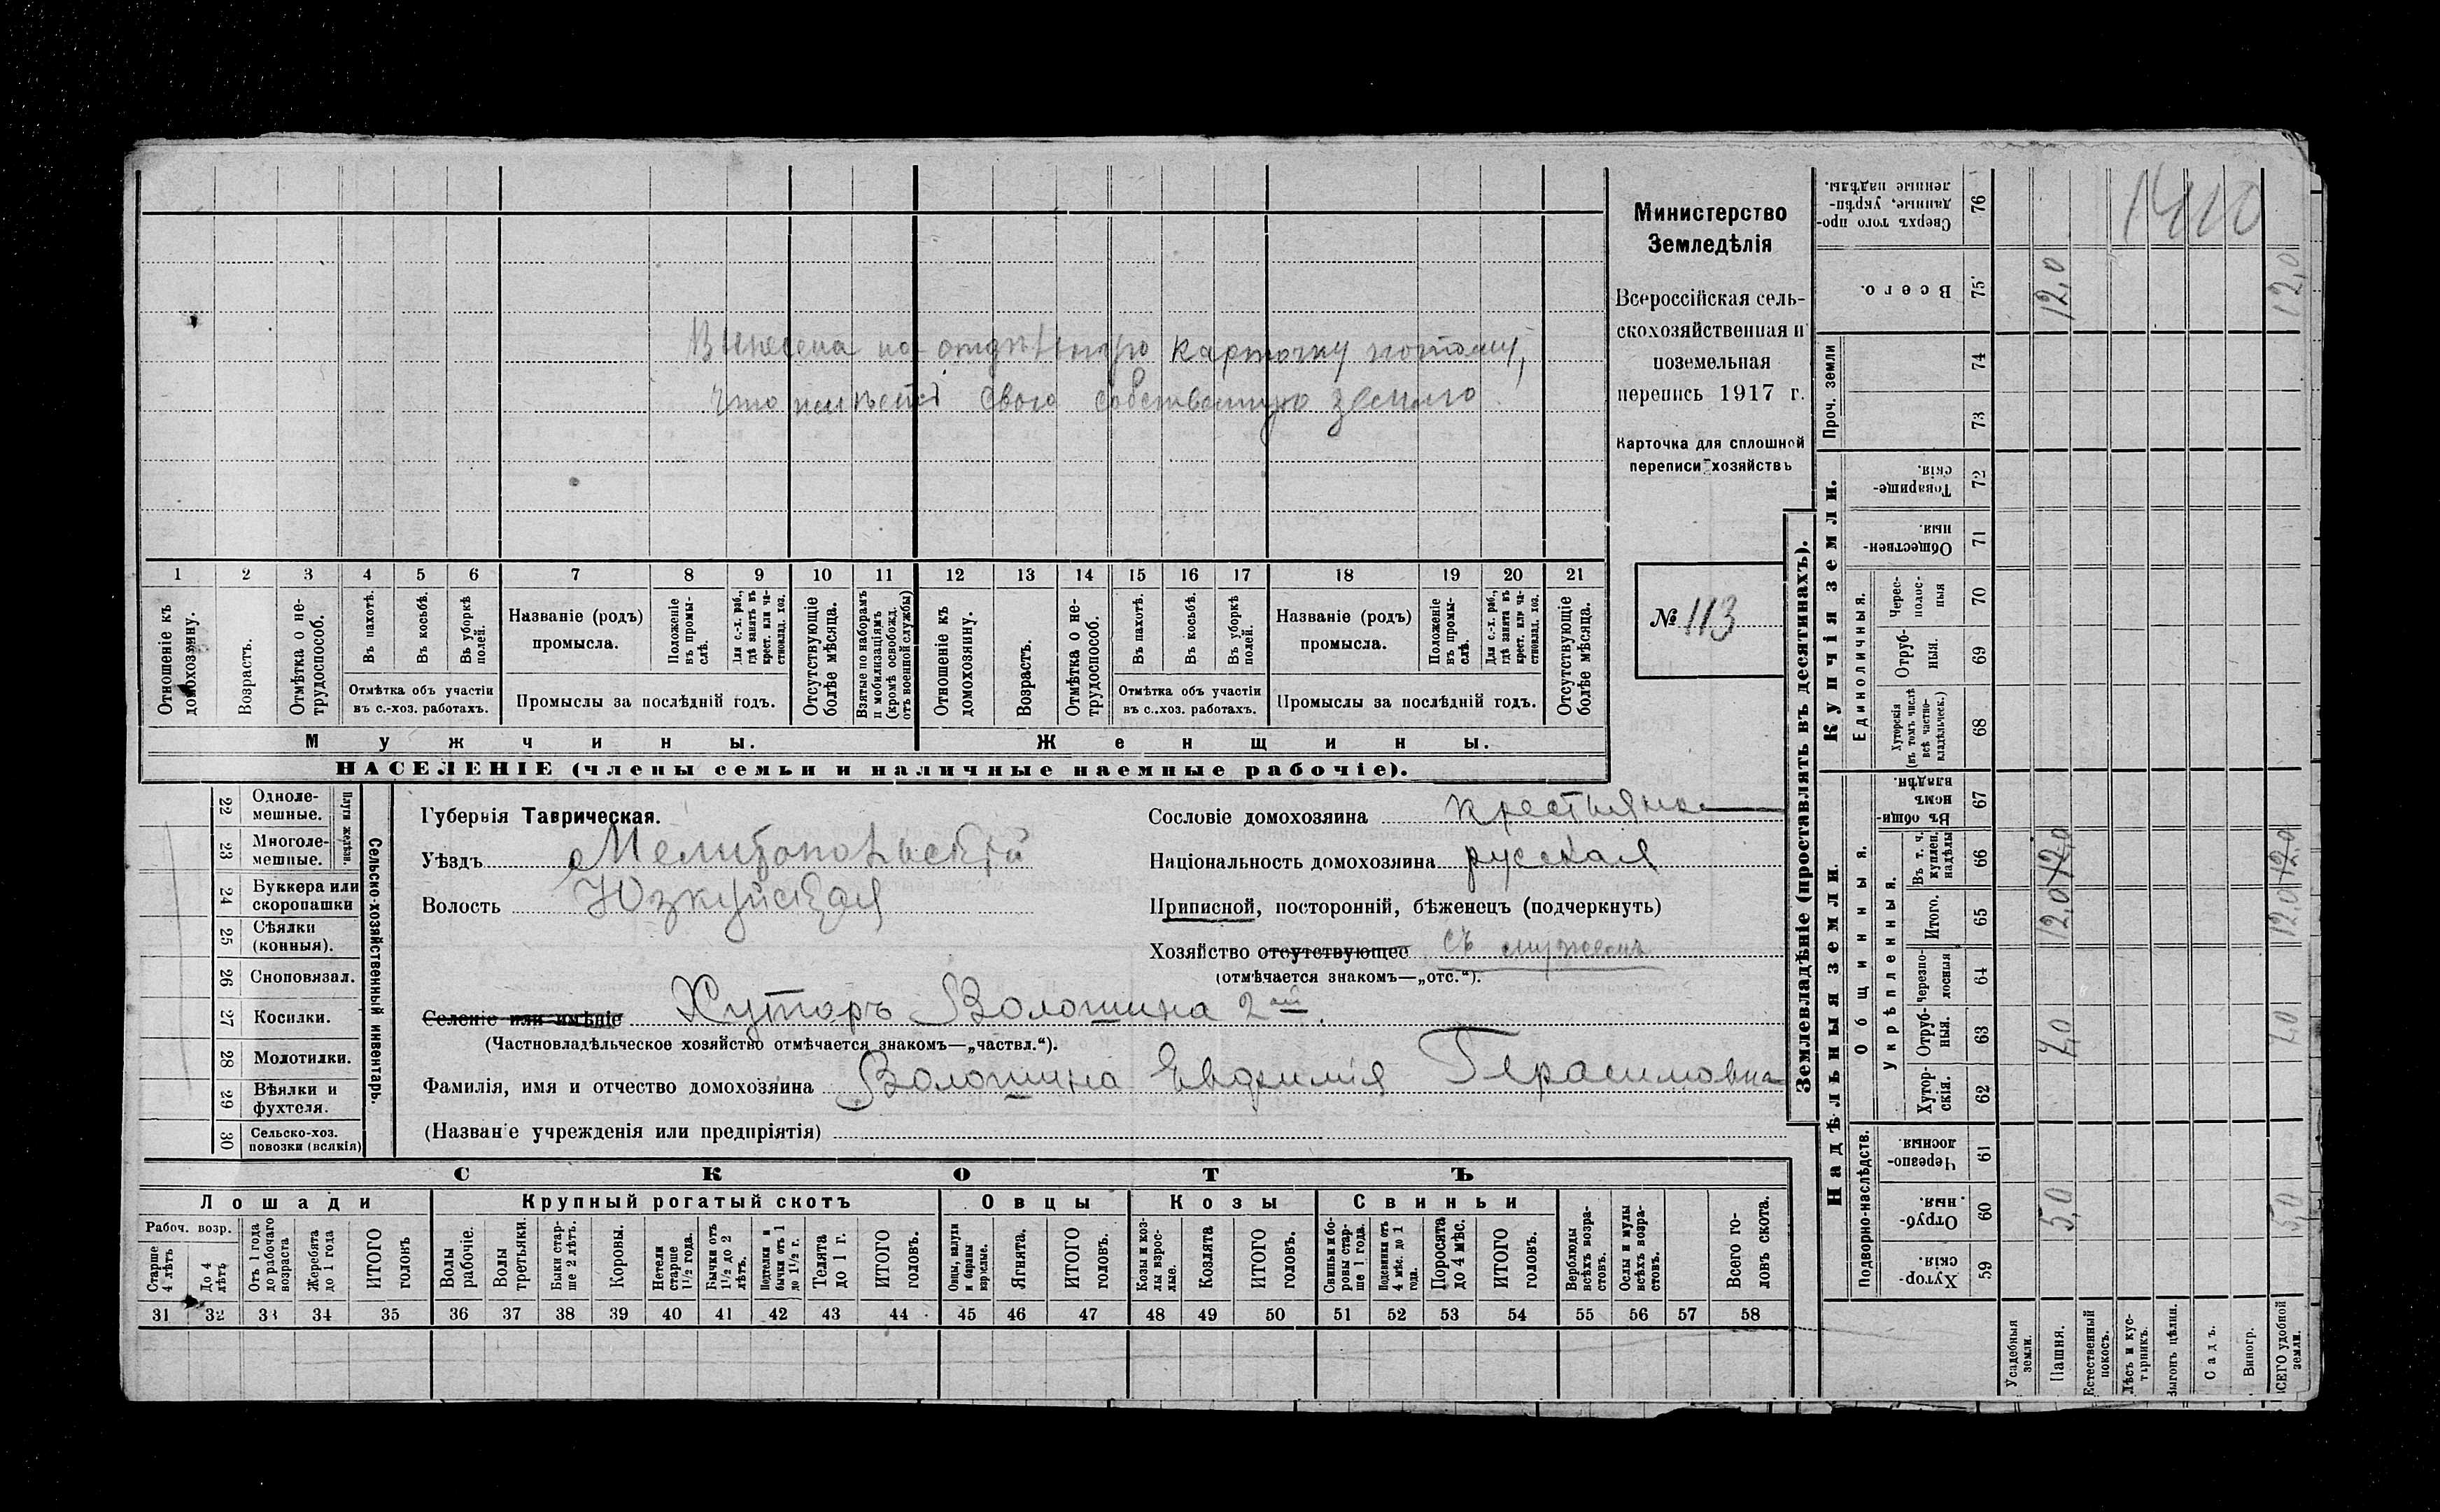 Вынесена на отдѣльную карточку потому,
что имѣетъ свою собственную землю.
1 2 3 4 5 6 7 8 9 10 11 12 13 14 15 16 17 18 19 20 21
Отношеніе къ домохозяину.
Возрастъ.
Отмѣтка о нетрудоспособ.
Въ пахотѣ.
Въ косьбѣ.
Въ уборкѣ полей.
Отмѣтка объ участіи
въ с.-хоз. работахъ.
Названіе (родъ)
промысла.
Положеніе въ промыслѣ.
Для с.-х. раб., гдѣ занятъ въ крест. или частновлад. хоз.
Промыслы за послѣдній годъ.
Отсутствующіе болѣе мѣсяца.
Взятые по наборамъ и мобилизаціямъ (кромѣ освобожд. отъ военной службы)
Отношеніе къ домохозяину.
Возрастъ.
Отмѣтка о нетрудоспособ.
Въ пахотѣ.
Въ косьбѣ.
Въ уборкѣ полей.
Отмѣтка объ участіи
въ с..хоз. работахъ.
Названіе (родъ)
промысла.
Положеніе въ промыслѣ.
Для с.-х. раб., гдѣ занята въ крест. или частновлад. хоз.
Промыслы за послѣдній годъ.
Отсутствующіе болѣе мѣсяца.
Мужчины.
Женщины.
НАСЕЛЕНІЕ (члены семьи и наличные наемные рабочіе).
Министерство
Земледѣлія
Всероссійская сель-
скохозяйственная и
поземельная
перепись 1917 г.
Карточка для сплошной
переписи хозяйствъ
№ 113
22 Одноле-
мешные.
23 Многоле-
мешные.
Плуги желѣзн.
24 Буккера или
скоропашки
25 Сѣялки
(конныя).
26 Сноповязал.
27 Косилки.
28 Молотилки.
29 Вѣялки и
фухтеля.
30 Сельско-хоз.
повозки (всякія)
Сельско-хозяйственный инвентарь.
Губернія Таврическая.
Уѣздъ Мелитопольскій
Волость Юзкуйская
Сословіе домохозяина крестьянка
Національность домохозяина русская
Приписной, посторонній, бѣженецъ (подчеркнуть)
Хозяйство отсутствующее съ мужемъ
(отмѣчается знакомъ—„отс.“).
Селеніе или имѣніе Хуторъ Волошина 2ой.
(Частновладѣльческое хозяйство отмѣчается знакомъ—„частвл.“).
Фамилія, имя и отчество домохозяина Волошина Евфимія Герасимовна
(Названіе учрежденія или предпріятія)
СКОТЪ
Лошади
Крупный рогатый скотъ
Овцы
Козы
Свиньи
Рабоч. возр.
Старше 4 лѣтъ
До 4 лѣтъ
Отъ 1 года до рабочаго возраста
Жеребята до 1 года
ИТОГО головъ
Волы рабочіе.
Волы третьяки.
Быки старше 2 лѣтъ.
Коровы.
Нетели старше 1½ года.
Бычки отъ 1½ до 2 лѣтъ.
Подтелки и бычки отъ 1 до 1½ г.
Телята до 1 г.
ИТОГО головъ.
Овцы, валухи и бараны взрослые.
Ягнята.
ИТОГО головъ.
Козы и козлы взрослые.
Козлята
ИТОГО головъ.
Свиньи и боровы старше 1 года.
Подсвинки отъ 4 мѣс. до 1 года.
Поросята до 4 мѣс.
ИТОГО головъ.
Верблюды всѣхъ возрастовъ.
Ослы и мулы всѣхъ возрастовъ.
Всего головъ скота.
31 32 33 34 35 36 37 38 39 40 41 42 43 44 45 46 47 48 49 50 51 52 53 54 55 56 57 58
Землевладѣніе (проставлять въ десятинахъ).
Надѣльныя земли.
Купчія земли.
Проч. земли
Подворно-наслѣдств.
Общинныя.
Укрѣпленныя.
Единоличныя.
Сверхъ того проданные, укрѣпленные надѣлы. 76
Всего. 75 12,0 12,0
74
73
Товарищескія. 72
Общественныя. 71
Чересполосныя 70
Отрубныя. 69
Хуторскія (въ томъ числѣ всѣ частновладѣльческ.) 68
Въ общинномъ владѣн. 67
Въ т. ч. куплен. надѣлы 66 12,0 12,0
Итого. 65 12,0 12,0
Черезполосныя 64
Отрубныя. 63 7,0 7,0
Хуторскія. 62
Черезполосныя. 61
Отрубныя. 60 5,0 5,0
Хуторскія. 59
Усадебныя земли.
Пашня.
Естественный покосъ.
Лѣсъ и кустарникъ.
Выгонъ цѣлин.
Садъ.
Виногр.
ВСЕГО удобной земли.